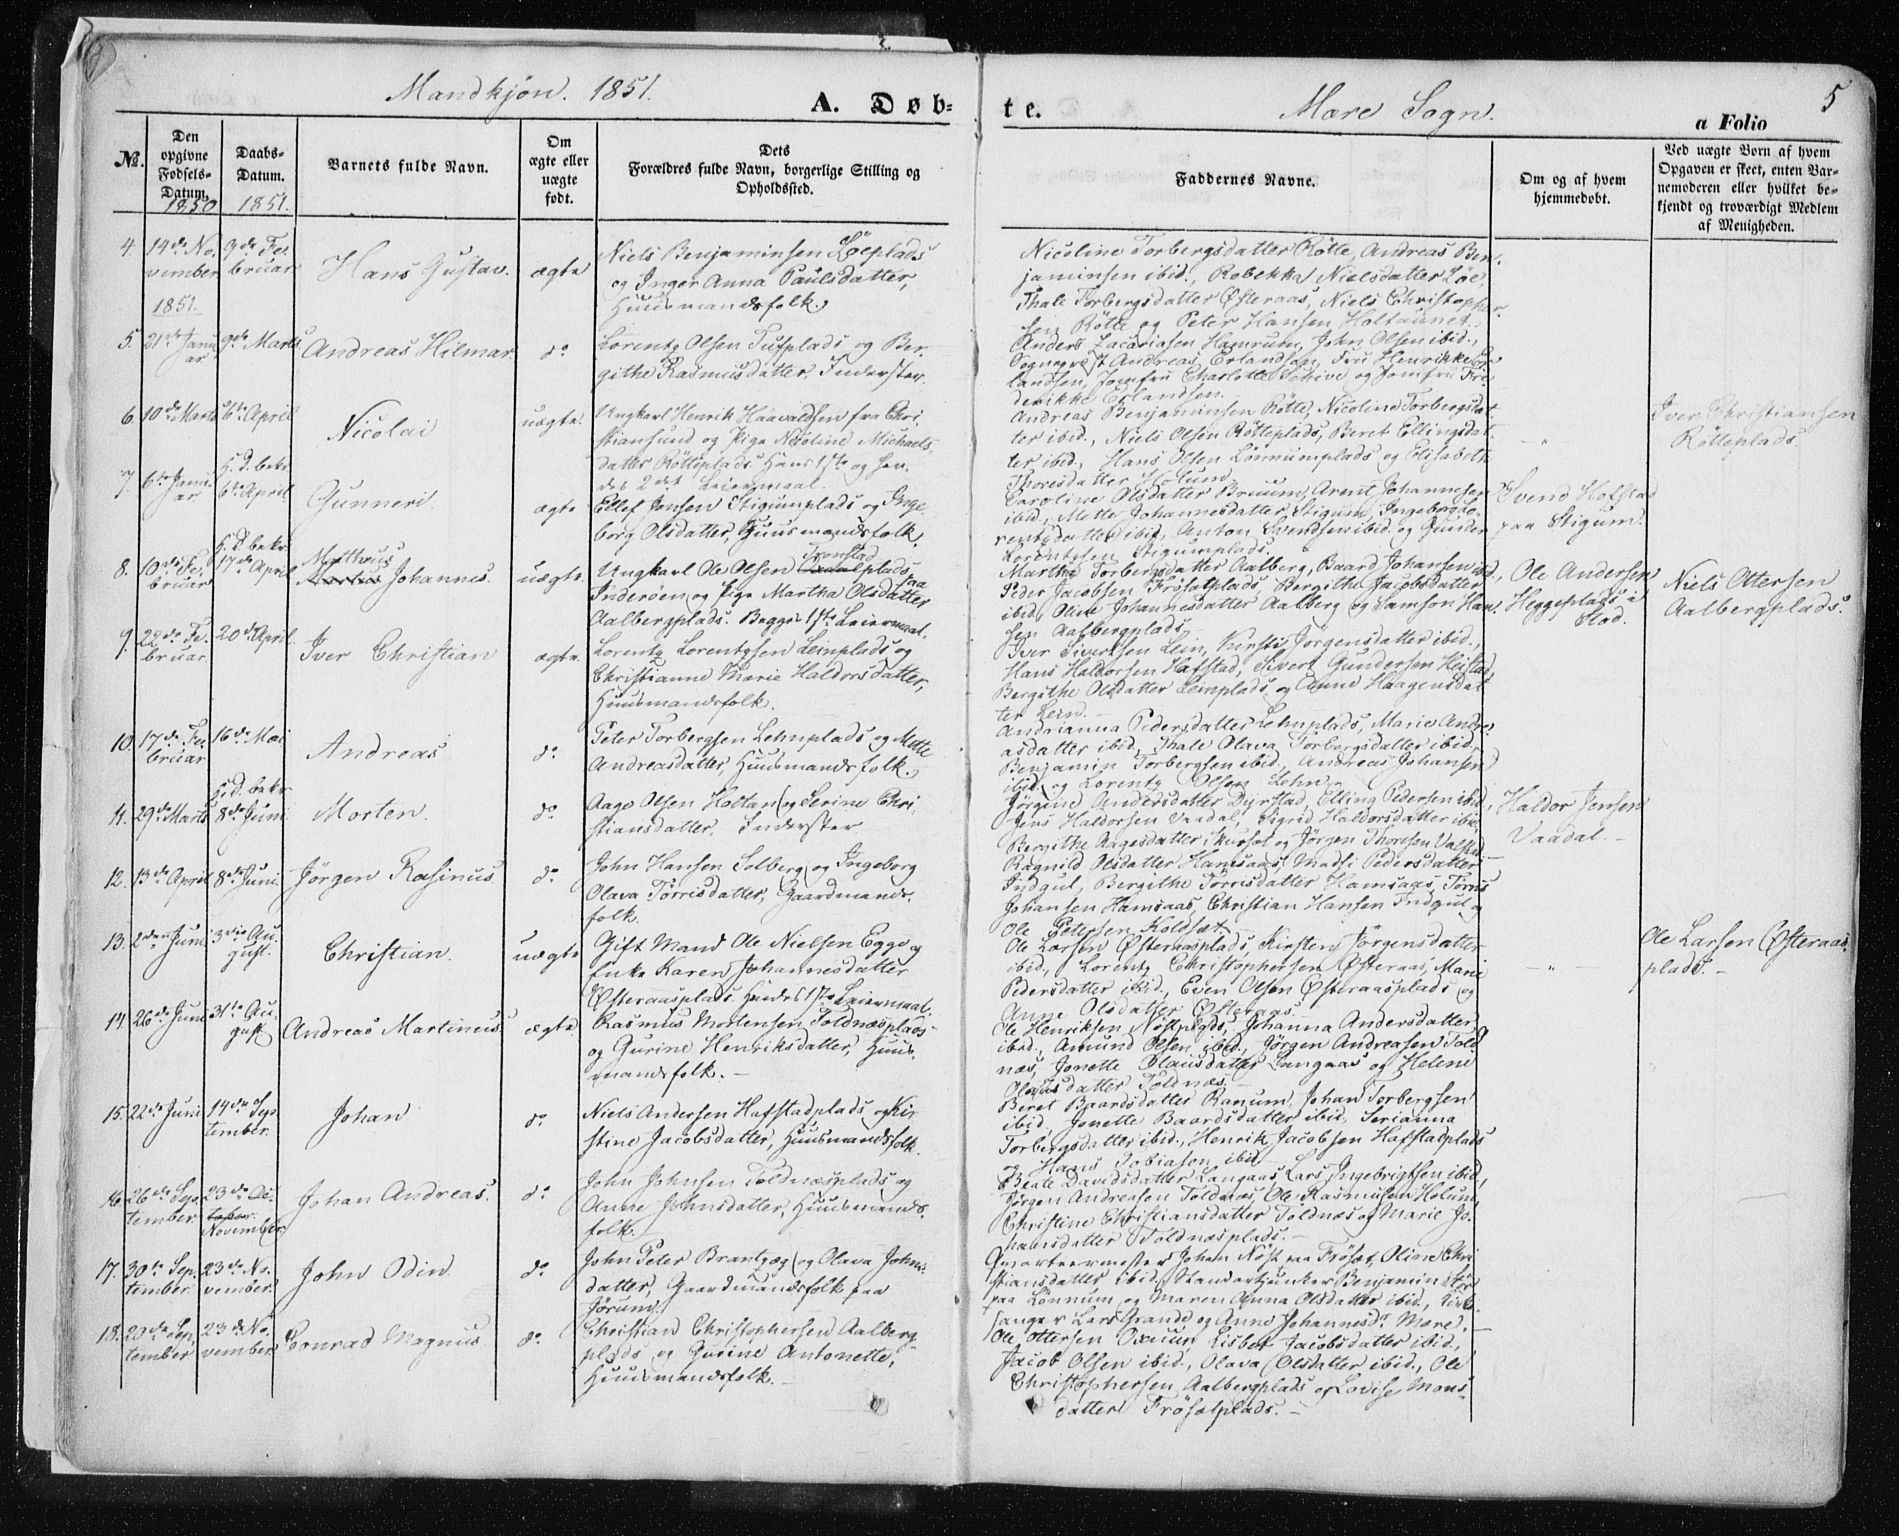 Mandkjøn. 1851.
A. Døb-
te.
Mære Sogn.
5
a Folio
No.
Den opgivne Fødsels-Datum.
Daabs-Datum.
Barnets fulde Navn.
Om ægte eller uægte født.
Dets Forældres fulde Navn, borgerlige Stilling og Opholdssted.
Faddernes Navne.
Om og af hvem hjemmedøbt.
Ved uægte Børn af hvem Opgaven er skeet, enten Bar-nemoderen eller hvilket be-kjendt og troværdigt Medlem af Menigheden.
1850 1851.
4. 14de No-vember 9de Fe-bruar Hans Gustav. ægte
Niels Benjaminsen Löeplads
og Inger Anna Paulsdatter,
Huusmandsfolk.
Nicoline Torbergsdatter Rötte, Andreas Ben-
jaminsen ibid., Rebekka Nielsdatter Löe,
Thale Torbergsdatter Østeraas, Niels Christopher-
sen Rötte og Peter Hansen Holtaunet.
1851.
5. 21de Janu-ar 9de Marts Andreas Hilmar do
Lorentz Olsen Tufplads og Ber-
githe Rasmusdatter, Inderster.
Anders Zacariasen Hamrum, John Olsen ibid.,
Sogneprest Andreas Erlandsen, Fru Henrikke Er-
landsen, Jomfru Charlotte Schive og Jomfru Fre-
derikke Erlandsen.
6. 10de Marts 6te April Nicolai uægte.
Ungkarl Henrik Haavaldsen fra Chri-
stiansund og Pige Nicoline Michaels-
datter Rötteplads. Hans 1ste og hen-
des 2det Leiermaal.
Andreas Benjaminsen Rötte, Nicoline Torbergsdat-
ter ibid., Niels Olsen Rötteplads, Beret Ellingsdat-
ter ibid., Hans Olsen Lönnumplads og Elisabeth
Thoresdatter Holund.
- " -
Iver Christiansen
Rötteplads.
7. 6te Janu-ar H. D. bekr. 6te April Gunneri. ægte
Ellef Jonsen Stigumplads og Inge-
borg Olsdatter, Huusmandsfolk.
Caroline Olsdatter Bruum, Arent Johannesen
ibid., Mette Johannesdatter Stigum, Ingeborg Lo-
rentsdatter ibid., Anton Svendsen ibid. og Gunder
Lorentzsen Stigumplads.
Svend Hofstad
paa Stigum.
8. 10de Fe-bruar H. D. bekr. 17de April Matthæus Johannes. uægte.
Ungkarl Ole Olsen Tronstad plads paa
Inderöen og Pige Martha Olsdatter
Aalbergplads. Begges 1ste Leiermaal.
Martha Torbergsdatter Aalberg, Baard Johansen ibid.,
Peder Jacobsen Frösetplads, Bergithe Jacobsdatter
ibid., Oline Johannesdatter Aalberg og Samson Han-
sen Aalbergplads.
Ole Andersen
Heggeplads i
Stod.
Niels Ottersen
Aalbergplads.
9. 22de Fe-bruar. 20de April. Iver Christian ægte.
Lorentz Lorentzsen Leinplads og
Christianne Marie Haldorsdatter,
Huusmandsfolk.
Iver Sivertsen Lein, Kirsti Jörgensdatter ibid.,
Hans Haldorsen Hafstad, Sivert Gundersen Heistad,
Bergithe Olsdatter Leinplads og Anne Haagensdat-
ter Lein.
10. 17de Fe-bruar 16de Mai Andreas do
Peter Torbergsen Lehnplads og Mette
Andreasdatter, Huusmandsfolk.
Andrianna Pedersdatter Lehnplads, Marie Andre-
asdatter ibid., Thale Olava Torbergsdatter ibid.,
Benjamin Torbergsen ibid., Andreas Johansen
ibid. og Lorentz Olsen Lehn.
11. 29de Marts H. D. bekr. 8de Juni Morten. do
Aage Olsen Holtan og Serine Chri-
stiansdatter, Inderster.
Jörgine Andersdatter Dyrstad, Elling Pedersen ibid.,
Jens Haldorsen Vaadal, Sigrid Haldorsdatter ibid.,
Bergithe Aagesdatter og Jörgen Thoresen Valstad
Haldor Jensen
Vaadal.
12. 13de April 8de Juni. Jörgen Rasinus do
John Hansen Solberg og Ingeborg
Olava Törrisdatter, Gaardmands-
folk.
Ragnild Olsdatter Hamsaas, Madsi Pedersdatter
Indgul, Bergithe Törrisdatter Hamsaas, Törris
Johansen Hamsaas, Christian Hansen Indgul og
Ole Petersen Koldset.
13. 2den Juni 3die Au-gust. Christian. uægte
Gift Mand Ole Nielsen Egge og
Enke Karen Johannesdatter
Østeraasplads. Hendes 1ste Leiermaal.
Ole Larsen Østeraasplads, Kirsten Jörgensdatter
ibid., Lorentz Christophersen Østeraas, Marie
Pedersdatter ibid., Even Olsen Østeraasplads og
Anne Olsdatter Østeraas.
- " -
Ole Larsen Østeraas-
plads.
14. 26de Juni 31te Au-gust Andreas Martineus ægte
Rasmus Mortensen Toldnæsplads
og Gurine Henriksdatter, Huus-
mandsfolk.
Ole Henriksen Nöstplads, Johanna Andersdatter
ibid., Amund Olsen ibid., Jörgen Andreasen Told-
næs, Jonette Olausdatter Langaas og Helene
Olausdatter Toldnæs.
15. 22de Juni 14de Sep-tember. Johan do
Niels Andersen Hafstadplads og Kir-
stine Jacobsdatter, Huusmandsfolk.
Beret Baardsdatter Ranum, Johan Torbergsen
ibid., Jonette Baardsdatter ibid., Serianna
Torbergsdatter ibid., Henrik Jacobsen Hafstadplads
og Hans Tobiasen ibid.
16. 26de Sep-tember 23de Oc-tober November Johan Andreas. do
John Johnsen Toldnæsplads og
Anne Johnsdatter, Huusmands-
folk.
Beate Davidsdatter Langaas, Lars Ingebrigtsen ibid.,
Jörgen Andreasen Toldnæs, Ole Rasmusen Holum,
Christine Christiansdatter Toldnæs og Marie Jo-
hansdatter Toldnæsplads.
17. 30te Sep-tember 23de No-vember. John Odin do
John Peter Brantzæg og Olava Johns-
datter, Gaardmandsfolk paa
Jörum.
Qvarteermester Johan Nöst paa Fröset, Oline Chri-
stiansdatter ibid., Standartjunker Benjamin
paa Lönnum og Maren Anna Olsdatter ibid., Kirke-
sanger Lars Grande og Anne Johannesdr. Mære.
18. 20de Sep-tember 23de No-vember. Cornrad Magnus do
Christian Christophersen Aalberg-
plads og Gurine Antonette,
Huusmandsfolk.
Ole Ottersen Oxaal, Lisbet Jacobsdatter ibid.,
Jacob Olsen ibid., Olava Olsdatter ibid., Ole
Christophersen Aalbergplads og Lovise Mons-
datter Frösetplads.